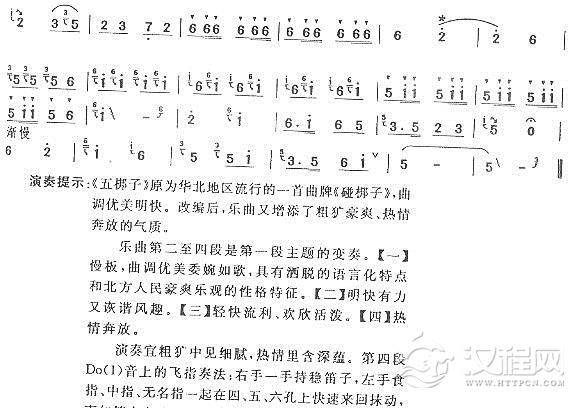 2 3 5 | 2 3 7 2 | 6 6 6 6 6 6 | 6 6 6 6 6 6 | 6 2 | 2 6 |
5 5 5 6 | i i i i | 6 i 6 i | 6 i 6 i | 5 i i 5 i i | 5 i i 5 i i |
5 i i 5 i i | i - | 2 i | 6· i 6 5 | 3· 5 2 3 | 5 0 |
渐慢
6 2 | i 3 | 5 6 i | 3· 5 6 i | 5 - | 5 - ‖
演奏提示:《五梆子》原为华北地区流行的一首曲牌《碰梆子》,曲
调优美明快。改编后,乐曲又增添了粗犷豪爽、热情
奔放的气质。
乐曲第二至四段是第一段主题的变奏。【一】
慢板,曲调优美委婉如歌,具有洒脱的语言化特点
和北方人民豪爽乐观的性格特征。【二】明快有力
又诙谐风趣。【三】轻快流利、欢欣活泼。【四】热
情奔放。
演奏宜粗犷中见细腻,热情里含深蕴。第四段
Do(1)音上的飞指奏法;右手一手持稳笛子,左手食
指、中指、无名指一起在四、五、六孔上快速来回抹动,
汉程网
WWW.HTTPCN.COM